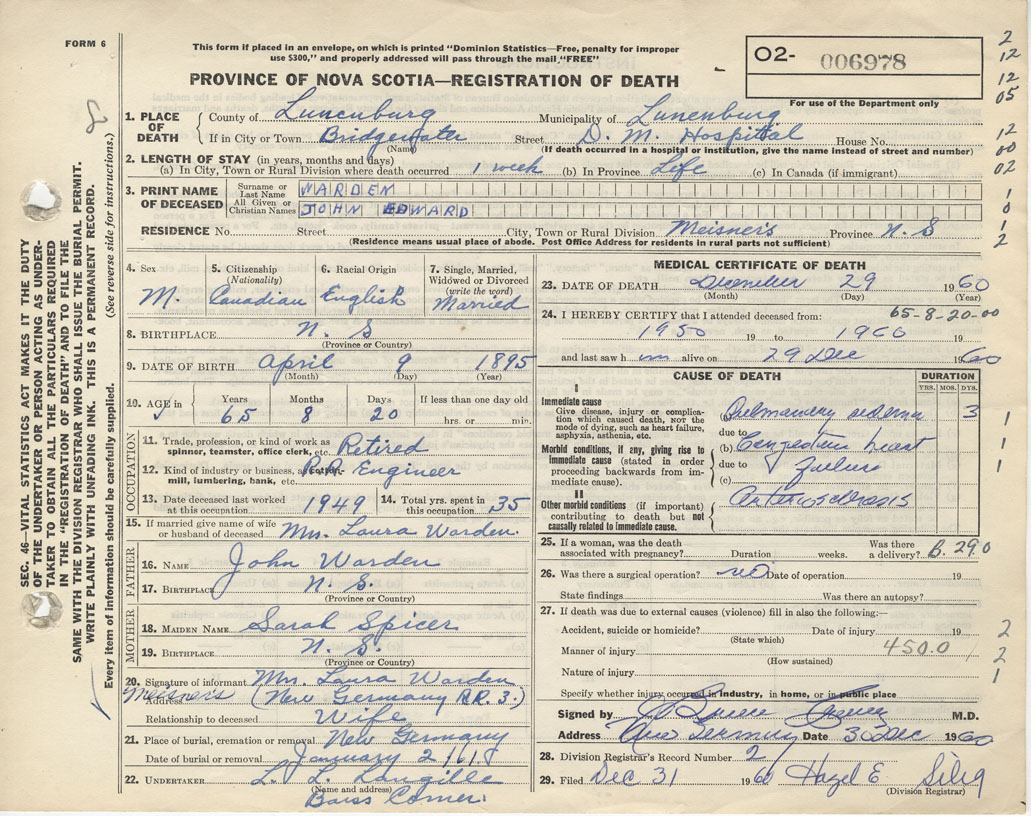 FORM 6
This form if placed in an envelope, on which is printed "Dominion Statistics—Free, penalty for improper
use $300," and properly addressed will pass through the mail "FREE"
PROVINCE OF NOVA SCOTIA—REGISTRATION OF DEATH
O2- 006978
For use of the Department only
1. PLACE OF DEATH
County of Lunenburg Municipality of Lunenburg
If in City or Town Bridgewater Street D. M. Hospital House No.
(Name) (If death occurred in a hospital or institution, give the name instead of street and number)
2. LENGTH OF STAY (in years, months and days)
(a) In City, Town or Rural Division where death occurred 1 week (b) In Province Life (c) In Canada (if immigrant)
3. PRINT NAME OF DECEASED
Surname or Last Name WARDEN
All Given or Christian Names JOHN EDWARD
RESIDENCE No. Street City, Town or Rural Division Meisner's Province N. S
(Residence means usual place of abode. Post Office Address for residents in rural parts not sufficient)
4. Sex M.
5. Citizenship (Nationality) Canadian
6. Racial Origin English
7. Single, Married, Widowed or Divorced (write the word) Married
8. BIRTHPLACE N. S
(Province or Country)
9. DATE OF BIRTH April 9 1895
(Month) (Day) (Year)
10. AGE in Years Months Days If less than one day old
65 8 20 hrs. or min.
OCCUPATION
11. Trade, profession, or kind of work as
spinner, teamster, office clerk, etc. Retired
12. Kind of industry or business, as cotton-
mill, lumbering, bank, etc. Engineer
13. Date deceased last worked
at this occupation 1949
14. Total yrs. spent in
this occupation 35
15. If married give name of wife
or husband of deceased Mrs. Laura Warden
FATHER
16. NAME John Warden
17. BIRTHPLACE N. S.
(Province or Country)
MOTHER
18. MAIDEN NAME Sarah Spicer
19. BIRTHPLACE N. S.
(Province or Country)
20. Signature of informant Mrs. Laura Warden
Address Meisner's (New Germany R.R. 3.)
Relationship to deceased Wife
21. Place of burial, cremation or removal New Germany
Date of burial or removal January 2
22. UNDERTAKER L. L. Langille
(Name and address)
Barss Corner.
MEDICAL CERTIFICATE OF DEATH
23. DATE OF DEATH December 29 1960
(Month) (Day) (Year)
65-8-20-00
24. I HEREBY CERTIFY that I attended deceased from:
1950 19 to 1960 19
and last saw h im alive on 29 Dec 1960
CAUSE OF DEATH DURATION
YRS. MOS. DYS.
I
Immediate cause
Give disease, injury or complica-
tion which caused death, NOT the
mode of dying, such as heart failure,
asphyxia, asthenia, etc.
(a) Pulmonary edema 3
due to
Morbid conditions, if any, giving rise to
immediate cause (stated in order
proceeding backwards from im-
mediate cause).
(b) Congestive heart
due to failure
(c)
II
Other morbid conditions (if important)
contributing to death but not
causally related to immediate cause.
Arteriosclerosis
25. If a woman, was the death
associated with pregnancy? Duration weeks. Was there
a delivery? B. 290
26. Was there a surgical operation? no Date of operation 19
State findings Was there an autopsy?
27. If death was due to external causes (violence) fill in also the following:—
Accident, suicide or homicide? Date of injury 19
(State which)
Manner of injury 450.0
(How sustained)
Nature of injury
Specify whether injury occurred in industry, in home, or in public place
Signed by M.D.
Address New Germany Date 30 Dec 1960
28. Division Registrar's Record Number 2
29. Filed Dec 31 1960 Hazel E
(Division Registrar)
SEC. 46—VITAL STATISTICS ACT MAKES IT THE DUTY
OF THE UNDERTAKER OR PERSON ACTING AS UNDER-
TAKER TO OBTAIN ALL THE PARTICULARS REQUIRED
IN THE "REGISTRATION OF DEATH" AND TO FILE THE
SAME WITH THE DIVISION REGISTRAR WHO SHALL ISSUE THE BURIAL PERMIT.
WRITE PLAINLY WITH UNFADING INK. THIS IS A PERMANENT RECORD.
Every item of information should be carefully supplied. (See reverse side for instructions.)
2
12
12
05
12
00
02
1
0
1
2
1
1
1
2
2
1